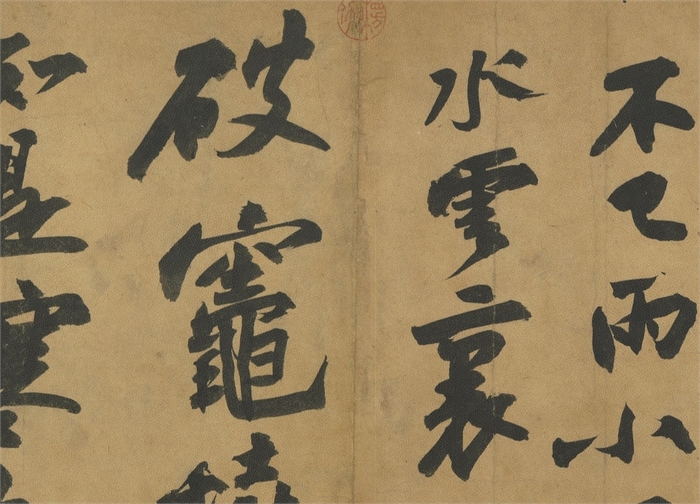 不已雨小
水雲裏
破竈燒
知是寒